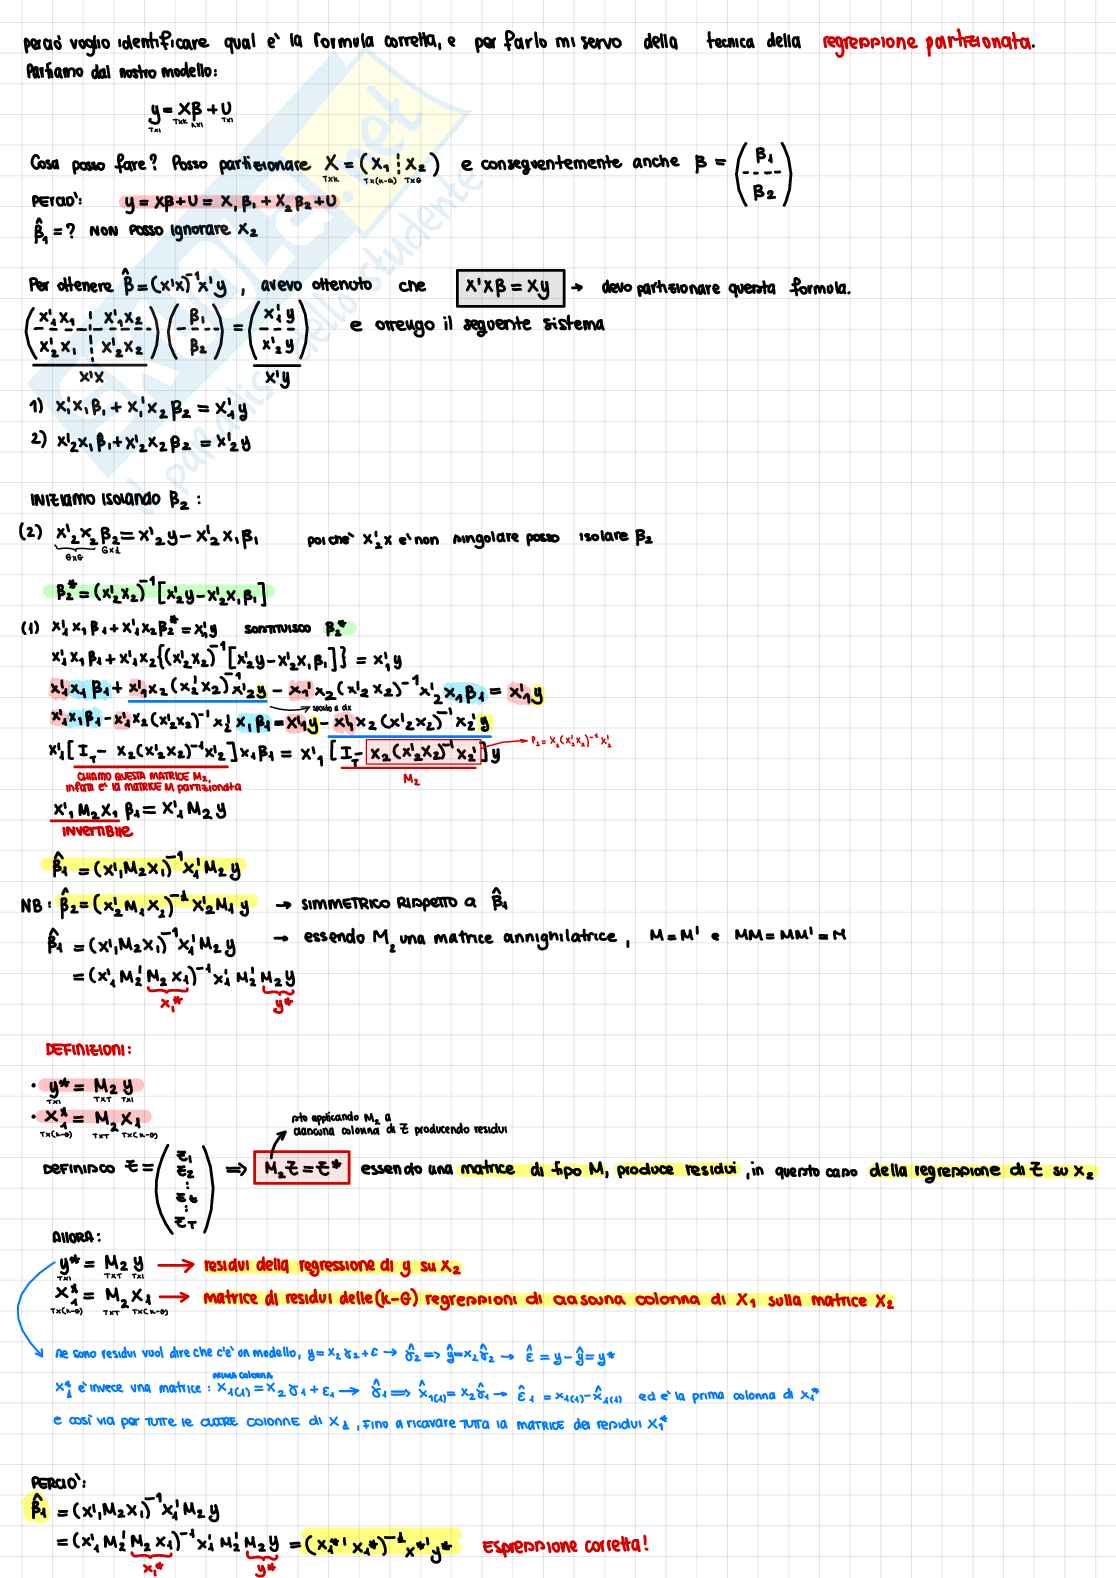 perciò voglio identificare qual è la formula corretta, e per farlo mi servo della tecnica della regressione partizionata.
Partiamo dal nostro modello:
y = Xβ + U
Tx1 TxK Kx1 Tx1
Cosa posso fare? Posso partizionare X = (X₁ ¦ X₂) e conseguentemente anche β = (β₁ --- β₂)
TxK Tx(K-G) TxG
PERCIO': y = Xβ+U = X₁β₁ + X₂β₂+U
β̂₁ = ? NON POSSO IGNORARE X₂
Per ottenere β̂ = (X'X)⁻¹X'y , avevo ottenuto che X'Xβ = Xy → devo partizionare questa formula.
(X'₁X₁ ¦ X'₁X₂ --- X'₂X₁ ¦ X'₂X₂) (β₁ --- β₂) = (X'₁y --- X'₂y) e ottengo il seguente sistema
X'X X'y
1) X'₁X₁β₁ + X'₁X₂β₂ = X'₁y
2) X'₂X₁β₁ + X'₂X₂β₂ = X'₂y
INIZIAMO ISOLANDO β₂ :
(2) X'₂X₂β₂ = X'₂y - X'₂X₁β₁ poiché X'₂X è non singolare posso isolare β₂
GxG Gx1
β₂* = (X'₂X₂)⁻¹[X'₂y - X'₂X₁β₁]
(1) X'₁X₁β₁ + X'₁X₂β₂* = X'₁y SOSTITUISCO β₂*
X'₁X₁β₁ + X'₁X₂{(X'₂X₂)⁻¹[X'₂y - X'₂X₁β₁]} = X'₁y
X'₁X₁β₁ + X'₁X₂(X'₂X₂)⁻¹X'₂y - X₁'X₂(X'₂X₂)⁻¹X'₂X₁β₁ = X'₁y
a dx
X'₁X₁β₁ - X'₁X₂(X'₂X₂)⁻¹X₂'X₁β₁ = X'₁y - X'₁X₂(X'₂X₂)⁻¹X₂'y
X'₁[I_T - X₂(X'₂X₂)⁻¹X'₂]X₁β₁ = X'₁[I_T - X₂(X'₂X₂)⁻¹X₂']y → P₂ = X₂(X'₂X₂)⁻¹X'₂
CHIAMO QUESTA MATRICE M₂, M₂
infatti è la MATRICE M partizionata
X'₁M₂X₁β₁ = X'₁M₂y
INVERTIBILE
β̂₁ = (X'₁M₂X₁)⁻¹X₁'M₂y
NB: β̂₂ = (X'₂M₁X₂)⁻¹X'₂M₁y → SIMMETRICO RISPETTO a β̂₁
β̂₁ = (X'₁M₂X₁)⁻¹X₁'M₂y → essendo M₂ una matrice annighilatrice, M = M' e MM = MM' = M
= (X'₁M₂'M₂X₁)⁻¹X₁'M₂'M₂y
X₁* y*
DEFINIZIONI:
• y* = M₂y
Tx1 TxT Tx1
• X₁* = M₂X₁
Tx(K-G) TxT Tx(K-G)
sto applicando M₂ a
ciascuna colonna di Z producendo residui
DEFINISCO Z = (Z₁ Z₂ : Zt : Z_T) ⟹ M₂Z = Z* essendo una matrice di tipo M, produce residui, in questo caso della regressione di Z su X₂
Allora:
y* = M₂y → residui della regressione di y su X₂
Tx1 TxT Tx1
X₁* = M₂X₁ → matrice di residui delle (k-G) regressioni di ciascuna colonna di X₁ sulla matrice X₂
Tx(K-G) TxT Tx(K-G)
se sono residui vuol dire che c'è un modello, y = X₂γ₂ + ε → γ̂₂ ⟹ ŷ = X₂γ̂₂ → ε̂ = y - ŷ = y*
PRIMA COLONNA
X₁* è invece una matrice: X₁₍₁₎ = X₂γ₁ + ε₁ → γ̂₁ ⟹ X̂₁₍₁₎ = X₂γ̂₁ → ε̂₁ = X₁₍₁₎ - X̂₁₍₁₎ ed è la prima colonna di X₁*
e così via per TUTTE le ALTRE COLONNE di X₁, FINO a ricavare TUTTA la MATRICE dei residui X₁*
PERCIO':
β̂₁ = (X'₁M₂X₁)⁻¹X₁'M₂y
= (X'₁M₂'M₂X₁)⁻¹X₁'M₂'M₂y = (X₁*'X₁*)⁻¹X*'y* Espressione corretta!
X₁* y*